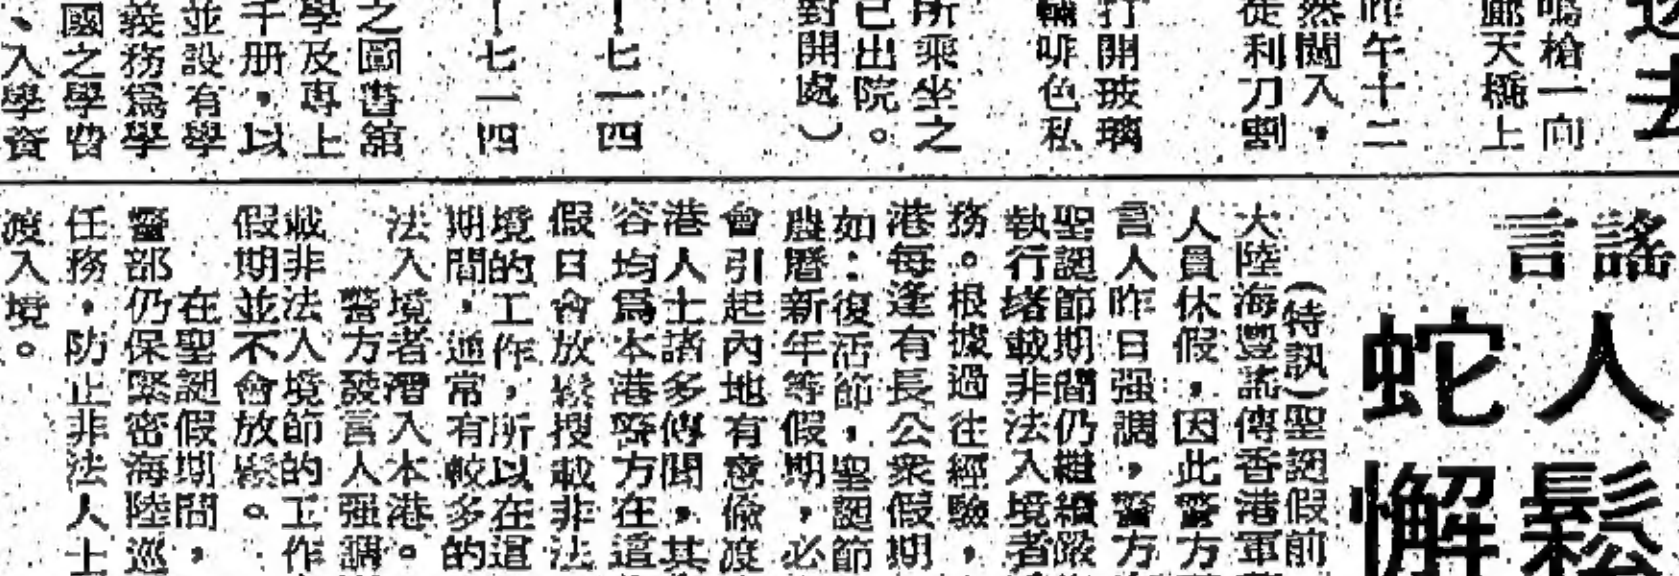 去
鳴槍一向
廊天橋上
昨午十二
然闖入，
徒利刀割
打開玻璃
輛啡色私
所乘坐之
已出院。
對開處）
｜七一四
｜七一四
之圖書舘
學及專上
千册，以
並設有學
義務爲學
國之學費
、入學資
謠言
人鬆
蛇懈
（特訊）聖誕假前
大陸海豐謠傳香港軍
人員休假，因此警方
言人昨日强調，警方
聖誕節期間仍繼續嚴
執行堵載非法入境者
務。根據過往經驗，
港每逢有長公衆假期
如：復活節，聖誕節
農曆新年等假期，必
會引起內地有意偸渡
港人士諸多傳聞，其
容均爲本港警方在這
假日會放鬆搜載非法
境的工作，所以在這
期間，通常有較多的
法入境者潛入本港。
警方發言人强調
截非法入境節的工作
假期並不會放鬆。
在聖誕假期間，
警部仍保緊密海陸巡
任務，防止非法人士
渡入境。